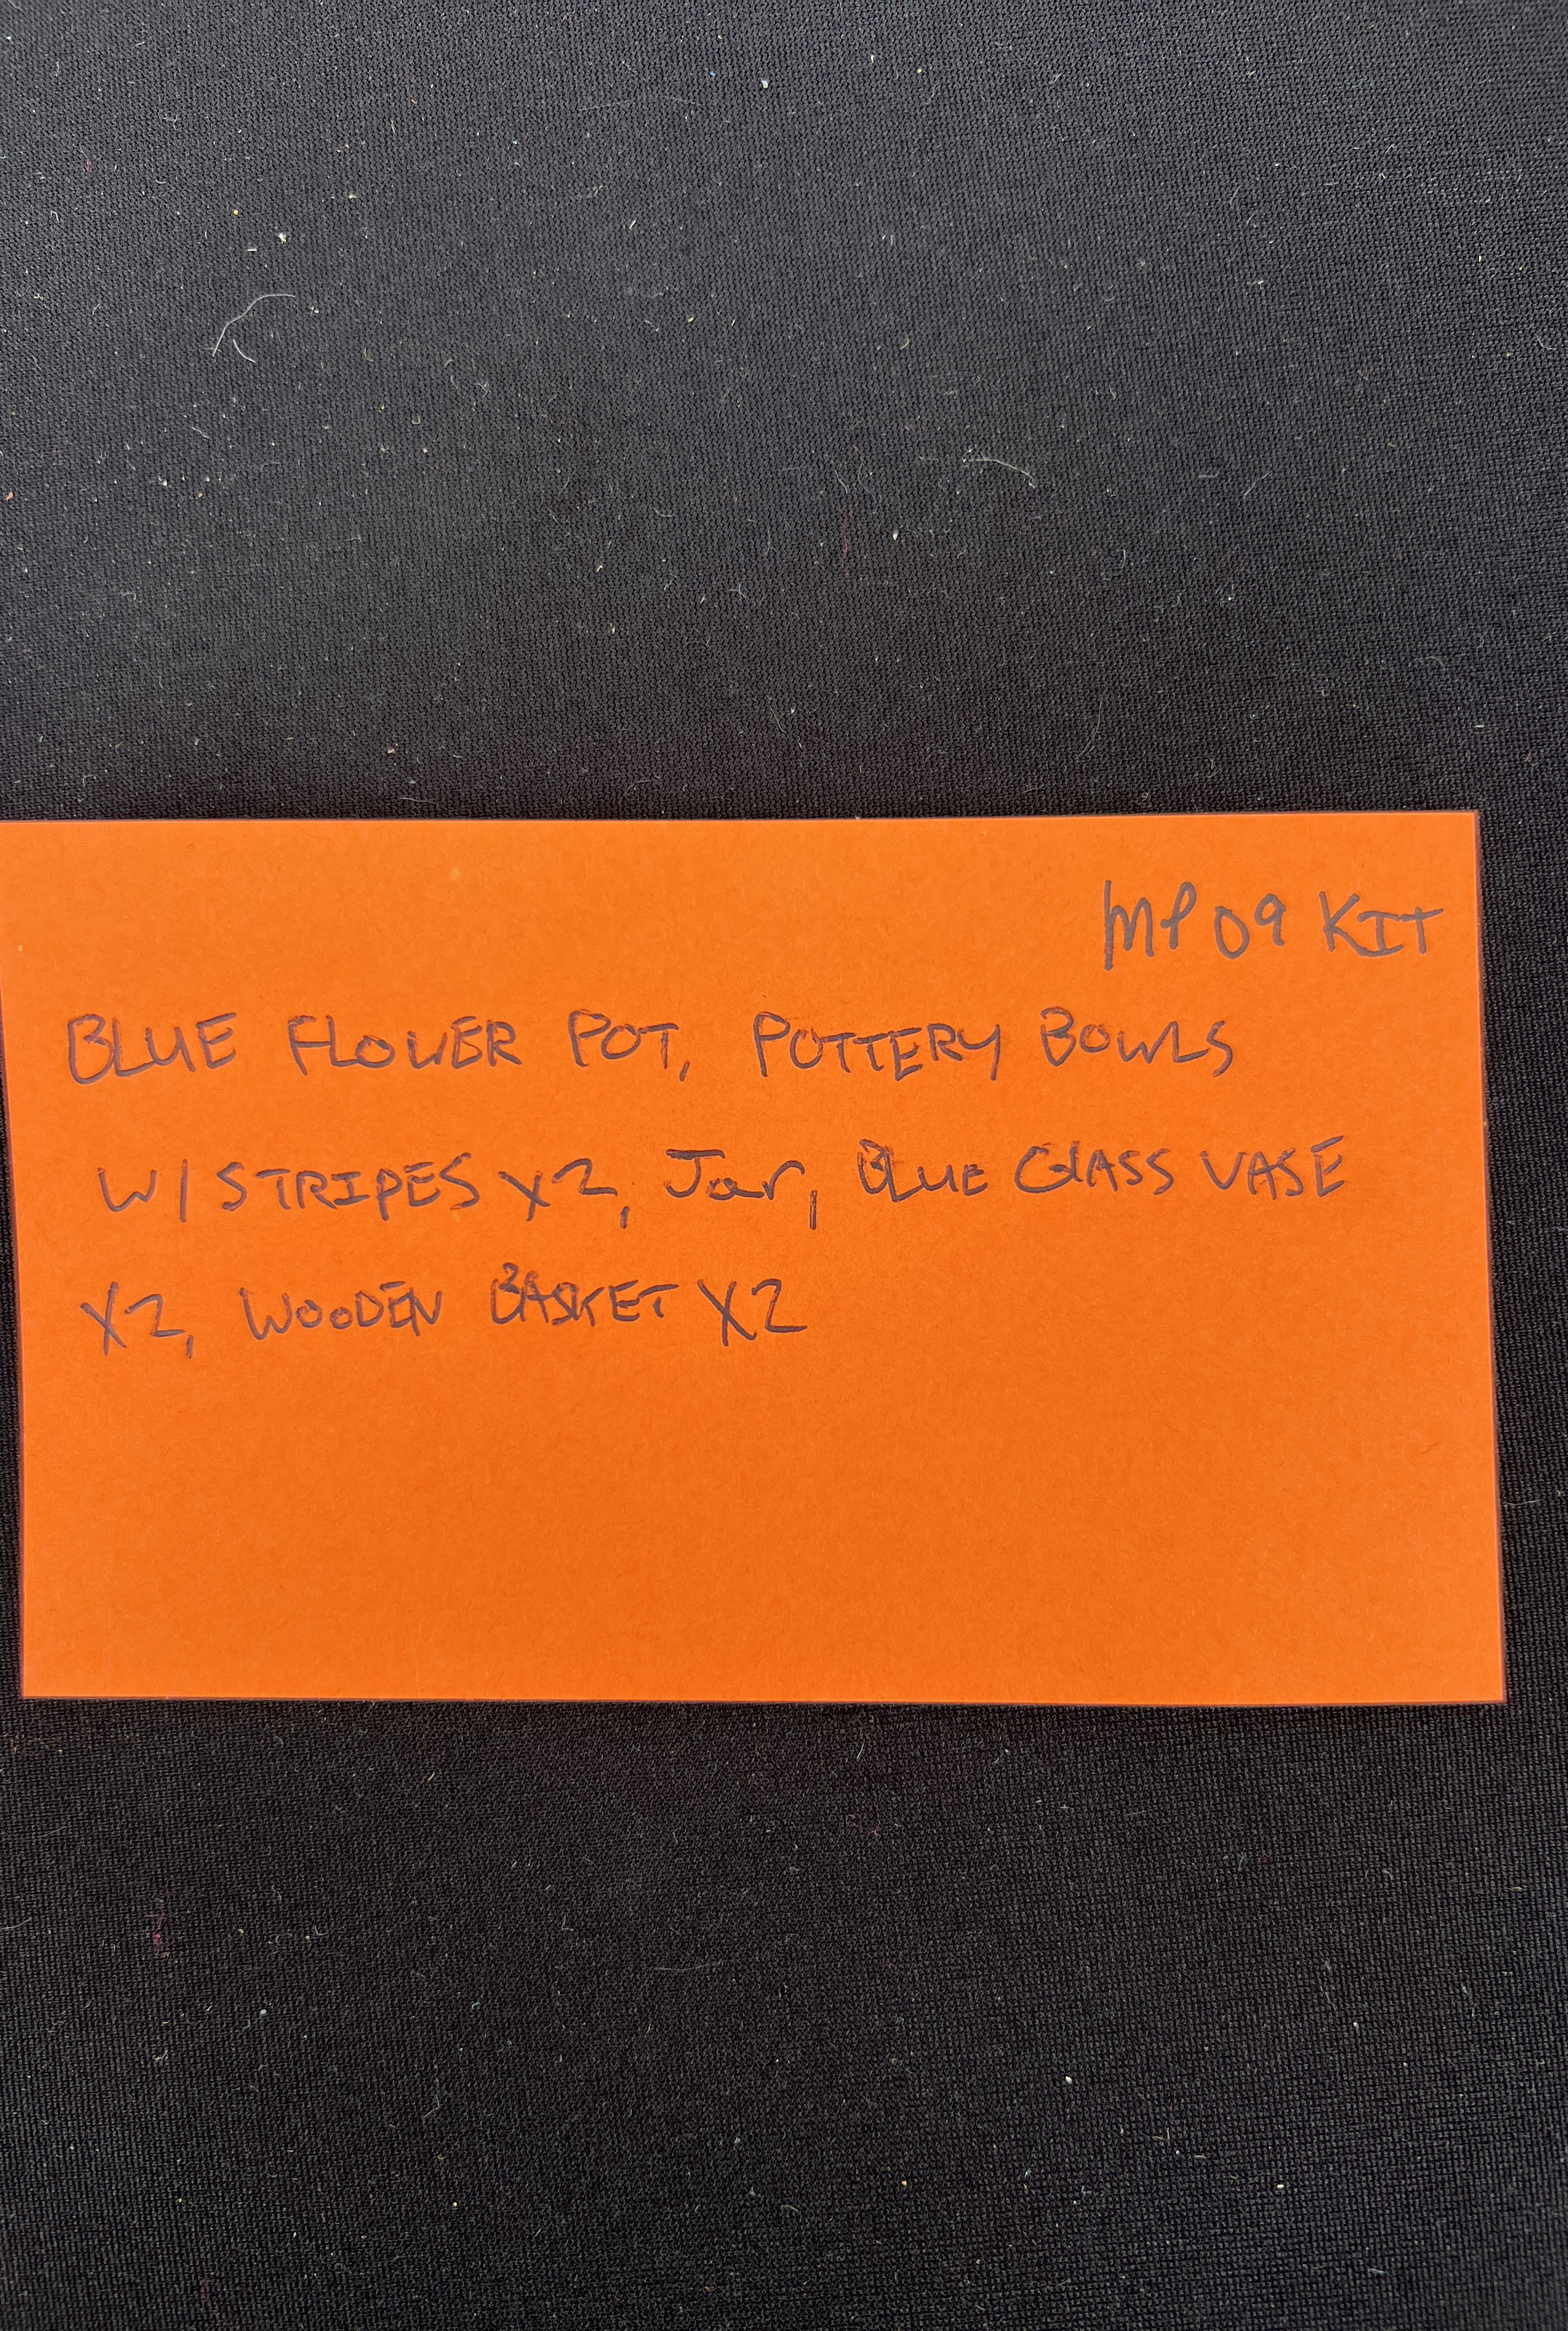 MP 09 KIT
BLUE FLOWER POT, POTTERY BOWLS
W/ STRIPES X2, Jar, BLUE GLASS VASE
X2, WOODEN BASKET X2